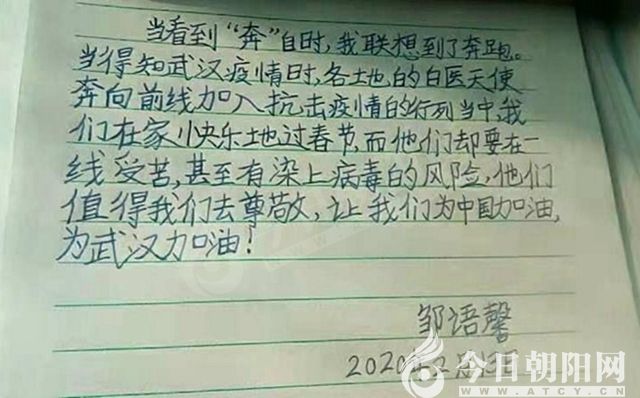 当看到“奔”自时，我联想到了奔跑。
当得知武汉疫情时，各地的白医天使
奔向前线加入抗击疫情的行列当中，我
们在家快乐地过春节，而他们却要在一
线受苦，甚至有染上病毒的风险，他们
值得我们去尊敬，让我们为中国加油，
为武汉加油！
邹语馨
2020年2月
今日朝阳网
WWW.ATCY.CN